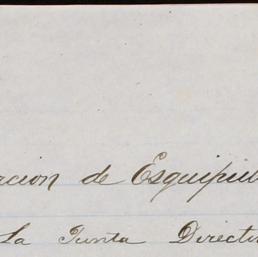 acion de Esquipul
La Junta Directi